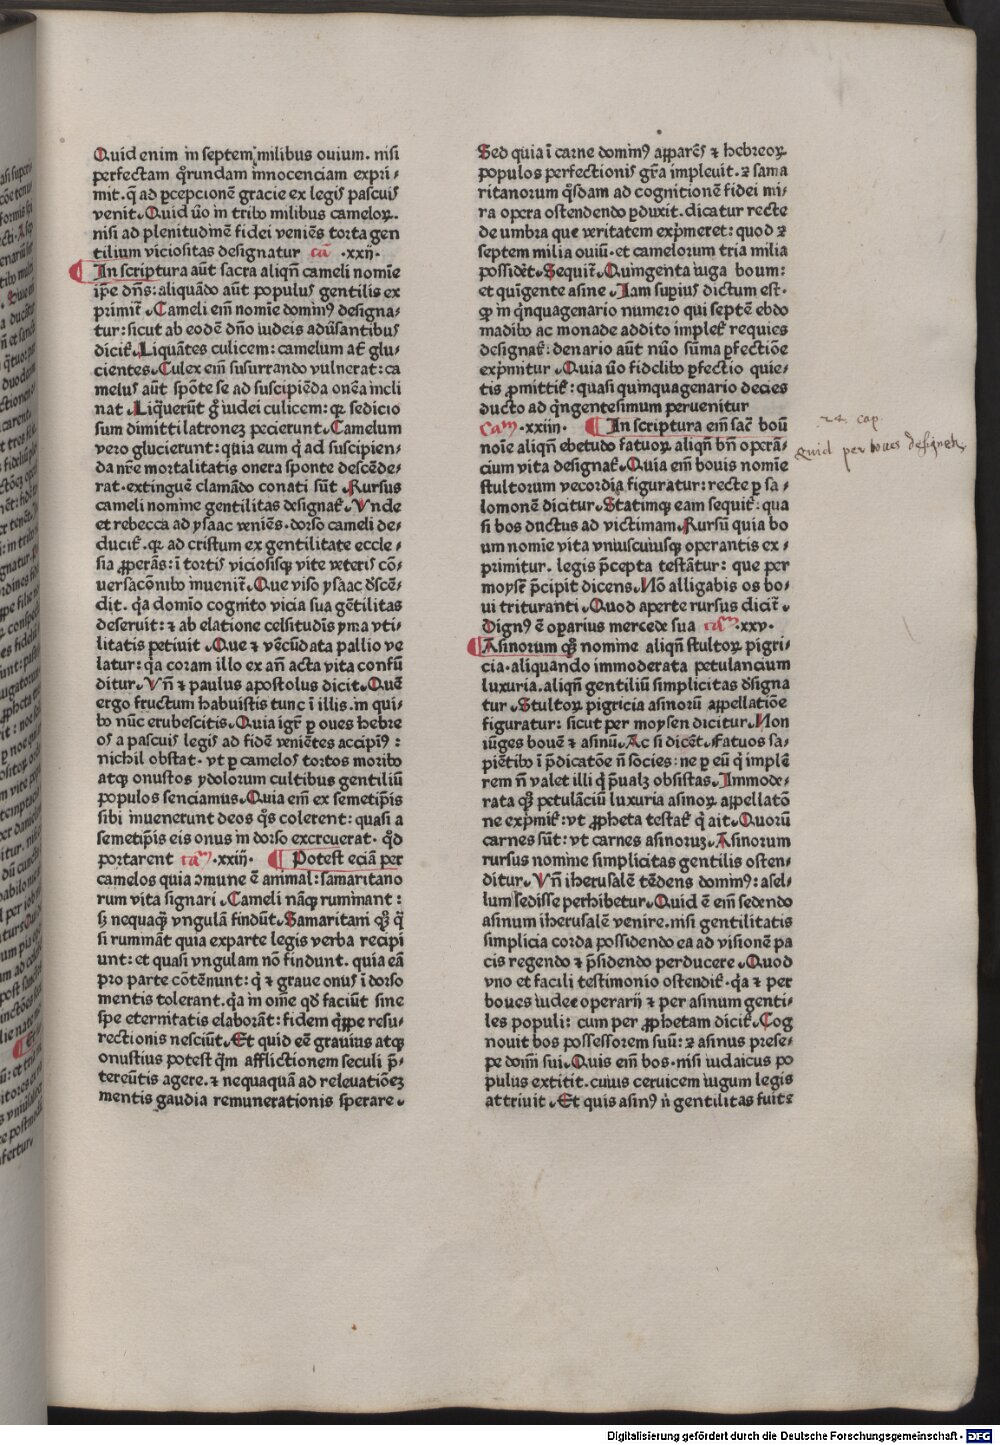 Quid enim in septem milibus ouium. nisi
perfectam qͦrundam innocenciam expri⸗
mit. q̄ ad ꝑcepcionē gracie ex legis pascuis
venit. Quid ūo in tribꝰ milibus cameloꝝ.
nisi ad plenitudinē fidei veniēs torta gen
tilium viciositas designatur cā .xxii.
In scriptura aūt sacra aliqn̄ cameli noīe
ip̄e dn̄s: aliquādo aūt populus gentilis ex
primit̄. Cameli em̄ noīe dominꝰ designa⸗
tur: sicut ab eodē dn̄o iudeis adūsantibus
dicit̄. Liquātes culicem: camelum aūt glu⸗
cientes. Culex em̄ susurrando vulnerat: ca
melus aūt spōte se ad suscipiēda onēa incli
nat. Liq̄uerūt gͦ iudei culicem: qꝛ sedicio
sum dimitti latronem pecierunt. Camelum
vero glucierunt: quia eum q̄ ad suscipien⸗
da nr̄e mortalitatis onera sponte descēde⸗
rat. extinguē clamādo conati sūt. Rursus
cameli nomine gentilitas designat̄. Vnde
et rebecca ad ysaac veniēs. dorso cameli de⸗
ducit̄. qꝛ ad cristum ex gentilitate eccle⸗
sia ꝓperās: ī tortis viciosisqꝫ vite veteris cō⸗
uersacōnibꝰ inuenit̄. Que viso ysaac dꝰscē⸗
dit. q̄a domīo cognito vicia sua gētilitas
deseruit: ⁊ ab elatione celsitudīs yma vti⸗
litatis petiuit. Que ⁊ vēcūdata pallio ve
latur: q̄a coram illo ex an̄ acta vita confū
ditur. Vn̄ ⁊ paulus apostolus dicit. Quē
ergo fructum habuistis tunc ī illis. in qui⸗
bꝰ nūc erubescitis. Quia igr̄ ꝑ oues hebre
os a pascuis legis ad fidē veniētes accipimꝰ:
nichil obstat. vt ꝑ camelos tortos moribꝰ
atqꝫ onustos ydolorum cultibus gentiliū
populos senciamus. Quia em̄ ex semetip̄is
sibi inuenerunt deos qͦs colerent: quasi a
semetip̄is eis onus in dorso excreuerat. qͦd
portarent cam .xxiii. Potest eciā per
camelos quia ꝯmune ē animal: samaritano
rum vita signari. Cameli nāqꝫ ruminant:
sꝫ nequaqꝫ vngulā findūt. Samaritani qͦꝫ qͣ
si rumināt quia exparte legis verba recipi
unt: et quasi vngulam nō findunt. quia eā
pro parte cōtēnunt: q̄ ⁊ graue onus ī dorso
mentis tolerant. q̄a in om̄e qd̄ faciūt sine
spe eternitatis elaborāt: fidem qͥppe resu⸗
rectionis nesciūt. Et quid eē grauius atqꝫ
onustius potest qͣm afflictionem seculi p̄⸗
tereūtis agere. ⁊ nequaquā ad releuatiōeꝫ
mentis gaudia remunerationis sperare.
Sed quia ī carne dominꝰ apparēs ⁊ hebreoꝝ
populos perfectionis grā impleuit. ⁊ sama
ritanorum qͦsdam ad cognitionē fidei mi⸗
ra opera ostendendo ꝑduxit. dicatur recte
de umbra que veritatem exp̄meret: quod ⁊
septem milia ouiū. et camelorum tria milia
possidēt. Sequit̄. Quingenta iuga boum:
et quīgente asine. Iam suꝑius dictum est.
ꝙ in qͥnquagenario numero qui septē ebdo
madibꝰ ac monade addito implet̄ requies
designat̄: denario aūt nūo sūma ꝑfectiōe
exp̄mitur. Quia ūo fidelibꝰ ꝑfectio quie⸗
tis ꝓmittit̄: quasi quinquagenario decies
ducto ad qͥngentesimum peruenitur
Cam .xxiiii. In scriptura em̄ sac̄ boū
noīe aliqn̄ ebetudo fatuoꝝ. aliqn̄ bn̄ operā⸗
cium vita designat̄. Quia em̄ bouis nomīe
stultorum vecordia figuratur: recte ꝑ sa⸗
lomonē dicitur. Statimqꝫ eam sequit̄: qua
si bos ductus ad victimam. Rursū quia bo
um nomīe vita vniuscuiusqꝫ operantis ex⸗
primitur. legis p̄cepta testātur: que per
moysē p̄cipit dicens. Nō alligabis os bo⸗
ui trituranti. Quod aperte rursus dicit̄.
Dignꝰ ē oꝑarius mercede sua cam .xxv.
Asinorum qͦꝫ nomine aliqn̄ stultoꝝ pigri⸗
cia. aliquando immoderata petulancium
luxuria. aliqn̄ gentiliū simplicitas dꝰsigna
tur. Stultoꝝ pigricia asinorū appellatiōe
figuratur: sicut per moysen dicitur. Non
iūges bouē ⁊ asinū. Ac si dicēt. Fatuos sa⸗
piētibꝰ ī p̄dicatōe n̄ socies: ne ꝑ eū qͥ implē
rem n̄ valet illi qͥ p̄ualꝫ obsistas. Immode⸗
rata qͦꝫ petulāciū luxuria asinoꝝ appellatō
ne exp̄mit̄: vt ꝓpheta testat̄ qͥ ait. Quorū
carnes sūt: vt carnes asinorum. Asinorum
rursus nomine simplicitas gentilis osten⸗
ditur. Vn̄ iherusalē tēdens dominꝰ: asel⸗
lum sedisse perhibetur. Quid ē em̄ sedendo
asinum iherusalē venire. nisi gentilitatis
simplicia corda possidendo ea ad visionē pa
cis regendo ⁊ p̄sidendo perducere. Quod
vno et facili testimonio ostendit̄. q̄a ⁊ per
boues iudee operarii ⁊ per asinum genti⸗
les populi: cum per ꝓphetam dicit̄. Cog
nouit bos possessorem suū: ⁊ asinus prese⸗
pe domī sui. Quis em̄ bos. nisi iudaicus po
pulus extitit. cuius ceruicem iugum legis
attriuit. Et quis asinꝰ n̄ gentilitas fuit:
24 cap.
Quid per boues designet̄.
Digitalisierung gefördert durch die Deutsche Forschungsgemeinschaft - DFG